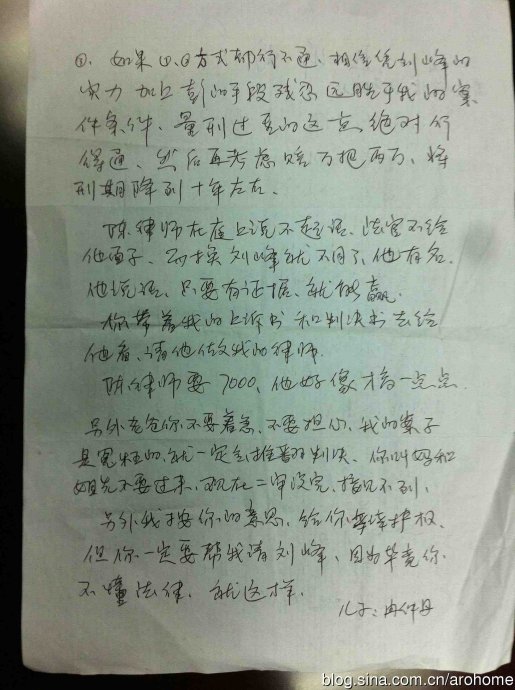 ③、如果①、②方式都行不通、相信凭刘峰的
实力 加上彭的手段残忍远胜于我的案
件条件、量刑过重的这点绝对行
得通、然后再考虑赔万把两万、将
刑期降到十年左右.
陈律师在庭上说不起话、法官不给
他面子、而换刘峰就不同了、他有名.
他说话、只要有证据、就能赢.
你带着我的上诉书和判决书去给
他看、请他做我的律师.
陈律师要7000、他好像才高一点点.
另外老爸你不要着急、不要担心、我的案子
是冤枉的、就一定会推翻判决. 你叫妈和
姐先不要过来、现在二审没完、接见不到.
另外我按你的意思、给你辩护权.
但你一定要帮我请刘峰、因为毕竟你
不懂法律. 就这样.
儿子:冉仟丹
blog.sina.com.cn/arohome